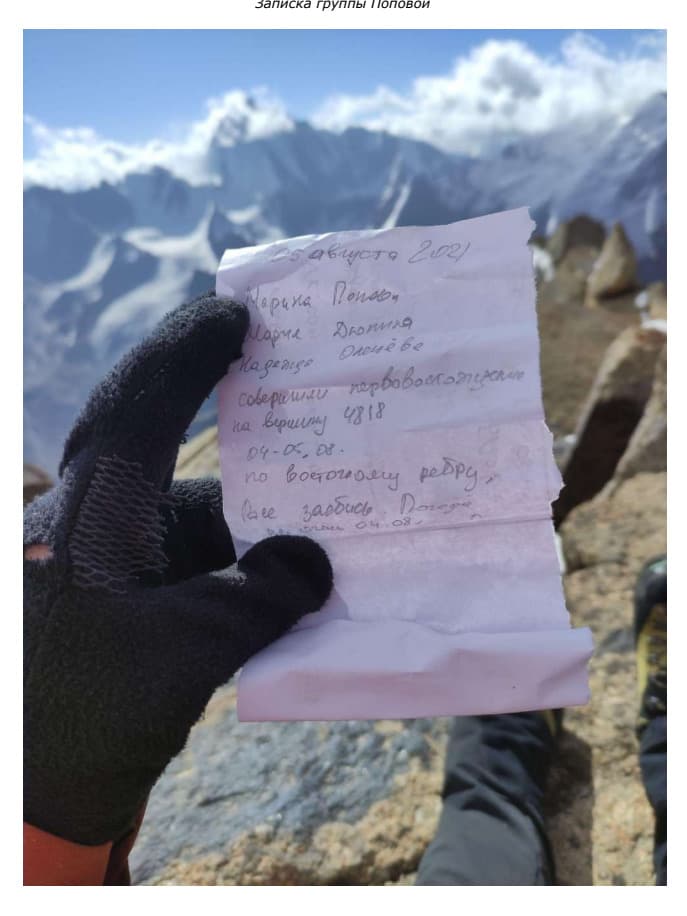 Записка группы Поповой
05 августа 2021
Марина Попова
Мария Дюпина
Надежда Оленёва
совершили первовосхождение
на вершину 4818
04-05.08.
по восточному ребру,
Все заебись. Погода
04.08.